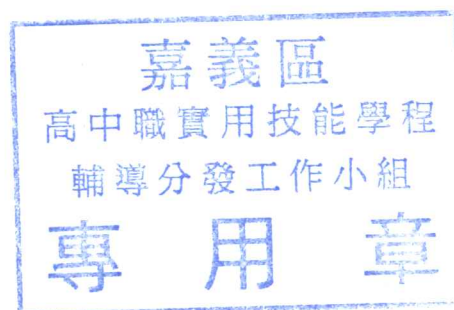 嘉義區
高中職實用技能學程
輔導分發工作小組
專用章